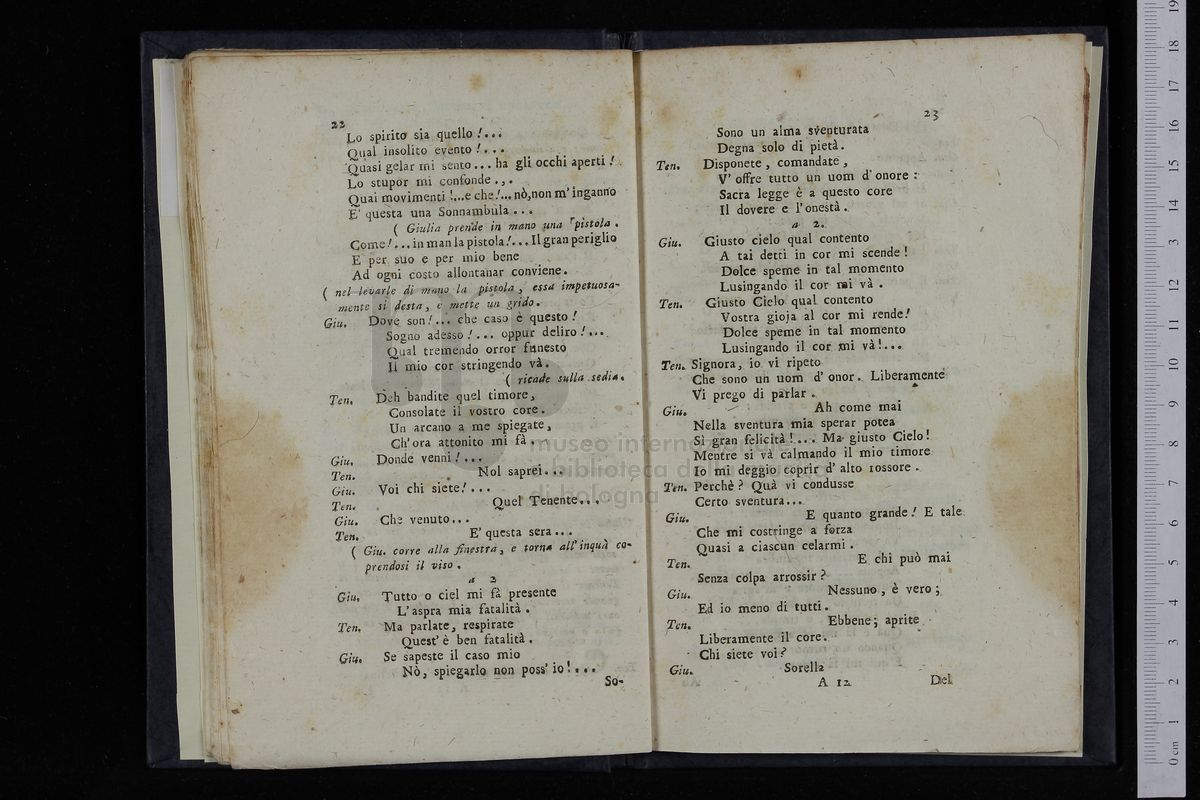 22
Lo spirito sia quello !...
Qual insolito evento !...
Quasi gelar mi sento... ha gli occhi aperti !
Lo stupor mi confonde...
Quai movimenti !...e che!... nò,non m'inganno
E' questa una Sonnambula...
( Giulia prende in mano una pistola.
Come!... in man la pistola!... Il gran periglio
E per suo e per mio bene
Ad ogni costo allontanar conviene.
( nel levarle di mano la pistola, essa impetuosa-
mente si desta, e mette un grido.
Giu. Dove son!... che caso è questo!
Sogno adesso!... oppur deliro!...
Qual tremendo orror funesto
Il mio cor stringendo và.
( ricade sulla sedia.
Ten. Deh bandite quel timore,
Consolate il vostro core.
Un arcano a me spiegate,
Ch'ora attonito mi fà.
Giu. Donde venni!...
Ten. Nol saprei...
Giu. Voi chi siete!...
Ten. Quel Tenente...
Giu. Che venuto...
Ten. E' questa sera...
( Giu. corre alla finestra, e torna all'inquà co-
prendosi il viso.
a 2
Giu. Tutto o ciel mi fà presente
L'aspra mia fatalità.
Ten. Ma parlate, respirate
Quest' è ben fatalità.
Giu. Se sapeste il caso mio
Nò, spiegarlo non poss' io!...
So-
23
Sono un alma sventurata
Degna solo di pietà.
Ten. Disponete, comandate,
V' offre tutto un uom d'onore:
Sacra legge è a questo core
Il dovere e l'onestà.
a 2.
Giu. Giusto cielo qual contento
A tai detti in cor mi scende!
Dolce speme in tal momento
Lusingando il cor mi và.
Ten. Giusto Cielo qual contento
Vostra gioja al cor mi rende!
Dolce speme in tal momento
Lusingando il cor mi và!...
Ten. Signora, io vi ripeto
Che sono un uom d' onor. Liberamente
Vi prego di parlar.
Giu. Ah come mai
Nella sventura mia sperar potea
Sì gran felicità!... Ma giusto Cielo!
Mentre si và calmando il mio timore
Io mi deggio coprir d' alto rossore.
Ten. Perchè? Quà vi condusse
Certo sventura...
Giu. E quanto grande! E tale
Che mi costringe a forza
Quasi a ciascun celarmi.
Ten. E chi può mai
Senza colpa arrossir?
Giu. Nessuno, è vero;
Ed io meno di tutti.
Ten. Ebbene; aprite
Liberamente il core.
Chi siete voi?
Giu. Sorella
A 12
Del
museo internazionale
e biblioteca della
di bologna
0 cm 1 2 3 4 5 6 7 8 9 10 11 12 13 14 15 16 17 18 19